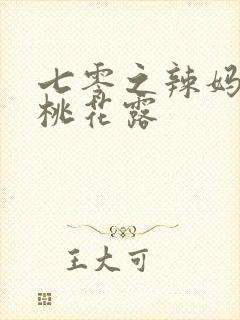 七零之辣妈
桃花露
王大可